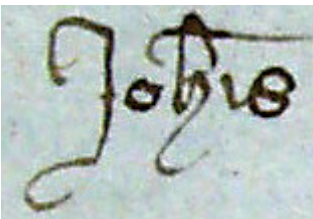 Joh̄is